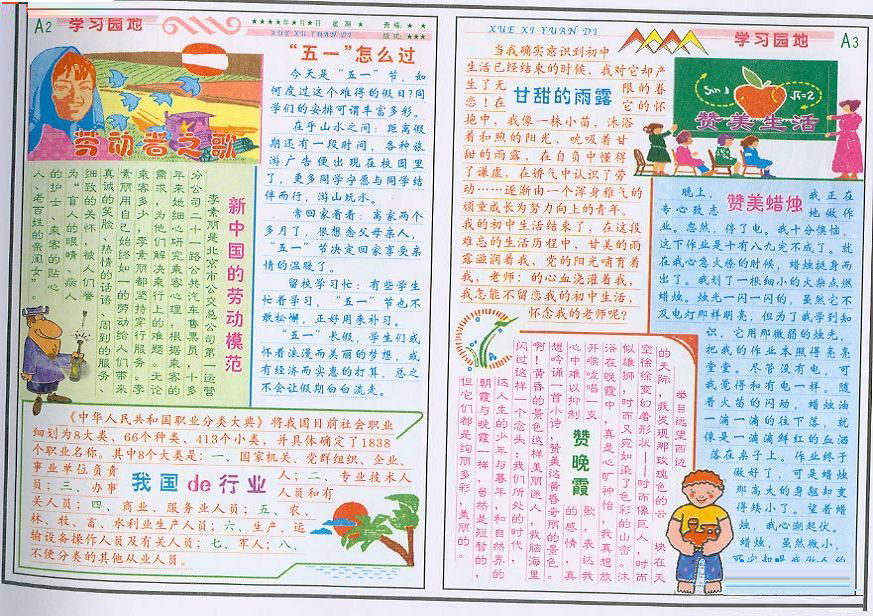 A2
学习园地
★★★★年★月★日 星期★
责编:★★
XUE XI YUAN DI
版式:★★★
劳动者之歌
“五一”怎么过
今天是“五一”节,如
何度过这个难得的假日?同
学们的安排可谓丰富多彩。
在乎山水之间:距离假
期还有一段时间,各种旅
游广告便出现在校园里
了,更多同学宁愿与同学结
伴而行,游山玩水。
常回家看看:离家两个
多月了,很想念父母亲人,
“五一”节决定回家享受亲
情的温暖了。
留校学习忙:有些学生
忙着学习,“五一”节也不
敢松懈,正好用来补习。
“五一”长假,学生们或
怀着浪漫而美丽的梦想,或
有经济而实惠的打算,总之
不会让假期白白流走。
新中国的劳动模范
李素丽是北京市公交总公司第一运营
分公司二十一路公共汽车售票员,十多
年来她细心研究乘客心理,根据乘客的
需求,为他们解决乘行上的难题。无论
乘客多少,李素丽都坚持穿行服务。李
素丽用自己始终如一的劳动给人们带来
真诚的笑脸、热情的话语、周到的服务、
细致的关怀,被人们誉
为“盲人的眼睛、病人
的护士、乘客的贴心
人、老百姓的亲闺女”。
《中华人民共和国职业分类大典》将我国目前社会职业
细划为8大类、66个种类、413个小类,并具体确定了1838
个职业名称。其中8个大类是:一、国家机关、党群组织、企业、
事业单位负责人;二、专业技术人
员;三、办事人员和有
我国de行业
关人员;四、商业、服务业人员;五、农、
林、牧、畜、水利业生产人员;六、生产、运
输设备操作人员及有关人员;七、军人;八、
不便分类的其他从业人员。
XUE XI YUAN DI
学习园地
A3
当我确实意识到初中
生活已经结束的时候,我对它却产
生了无限的眷
恋!在它的怀
甘甜的雨露
抱中,我像一株小苗,沐浴
着和煦的阳光,吮吸着甘
甜的雨露,在自负中懂得
了谦虚,在娇气中认识了劳
动……逐渐由一个浑身稚气的
顽童成长为努力向上的青年。
我的初中生活结束了,在这段
难忘的生活历程中,甘美的雨
露滋润着我,党的阳光哺育着
我,老师:的心血浇灌着我,
我怎能不留恋我的初中生活,
怀念我的老师呢?
Sin
√=2
赞美生活
赞美蜡烛
晚上,我正在
专心致志地做作
业。忽然,停了电。我十分懊恼,
这下作业是十有八九完不成了。就
在我心急火燎的时候,蜡烛挺身而
出了。我划了一根细小的火柴点燃
蜡烛。烛光一闪一闪的,虽然它不
及电灯那样明亮,但为了我学到知
识,它用那微弱的烛光,
把我的作业本照得亮亮
堂堂。尽管没有电,可
我觉得和有电一样。随
着火苗的闪动,蜡烛油
一滴一滴的往下落,就
像是一滴滴鲜红的血洒
落在桌子上。作业终于
做好了,可是蜡烛
那高大的身躯却变
得矮小了。望着蜡
烛,我心潮起伏。
蜡烛,虽然微小,
赞晚霞
举目远望西边
的天际,我发现那玫瑰色的云块在天
空徐徐变幻着形状——时而像巨人,时而
似雄狮,时而又宛如染了色彩的山峦。沐
浴在晚霞中,真是心旷神怡,我真想放
开喉咙唱一支歌,表达我
心中难以抑制的感情,真
想吟诵一首小诗,赞美这黄昏奇丽的景色。
啊!黄昏的景色这样美丽迷人,我脑海里
闪过这样一个念头:我们所处的时代,
这人生的少年与暮年,和自然界的
朝霞与晚霞一样,虽然是短暂的,
但它们都是绚丽多彩、美丽的。